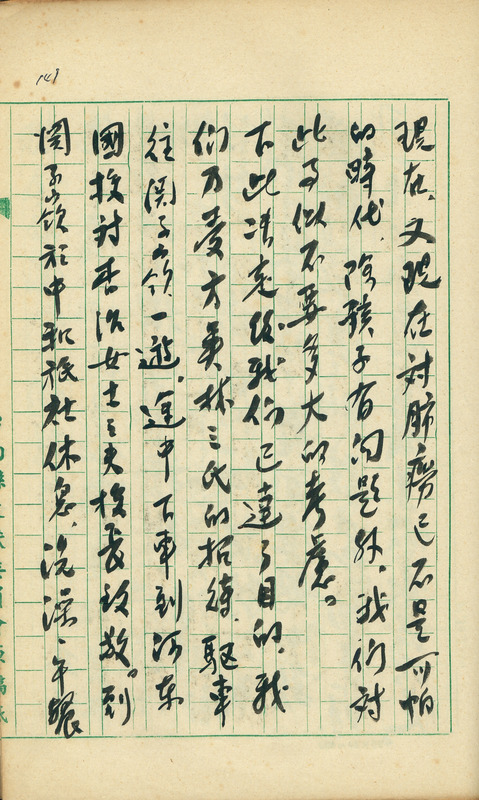 149
現在、又現在対肺癆已不是可怕
的時代、除孩子有问題外、我们对
此事似不要多大的考慮。
下此決意後我们已達了目的、我
们乃受方英林三氏的招待、駆車
往関子嶺一遊、途中下車到河东
國校对杏治女士之夫校長致敬。到
関子嶺於中和旅社休息、洗澡、午飯